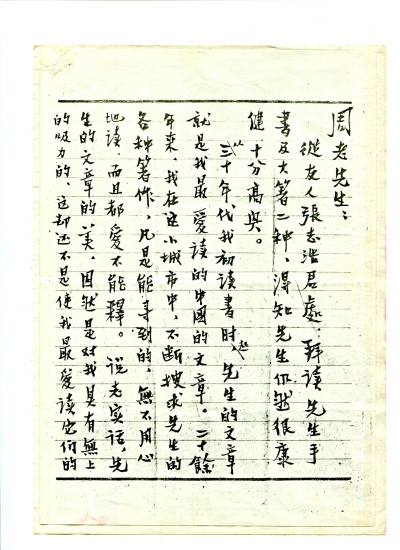 周老先生：
從友人張志浩君處，拜读 先生手
書及大著二种，得知先生仍然很康
健，十分高兴。
从三十年代我初读書时起，先生的文章
就是我最爱读的中國的文章。二十餘
年来，我在这小城市中，不断搜求先生的
各种著作，凡是能寻到的，無不用心
地读，而且都爱不能釋。说老实话，先
生的文章的美，固然是对我具有無上
的吸力的，这却还不是使我最爱读它们的